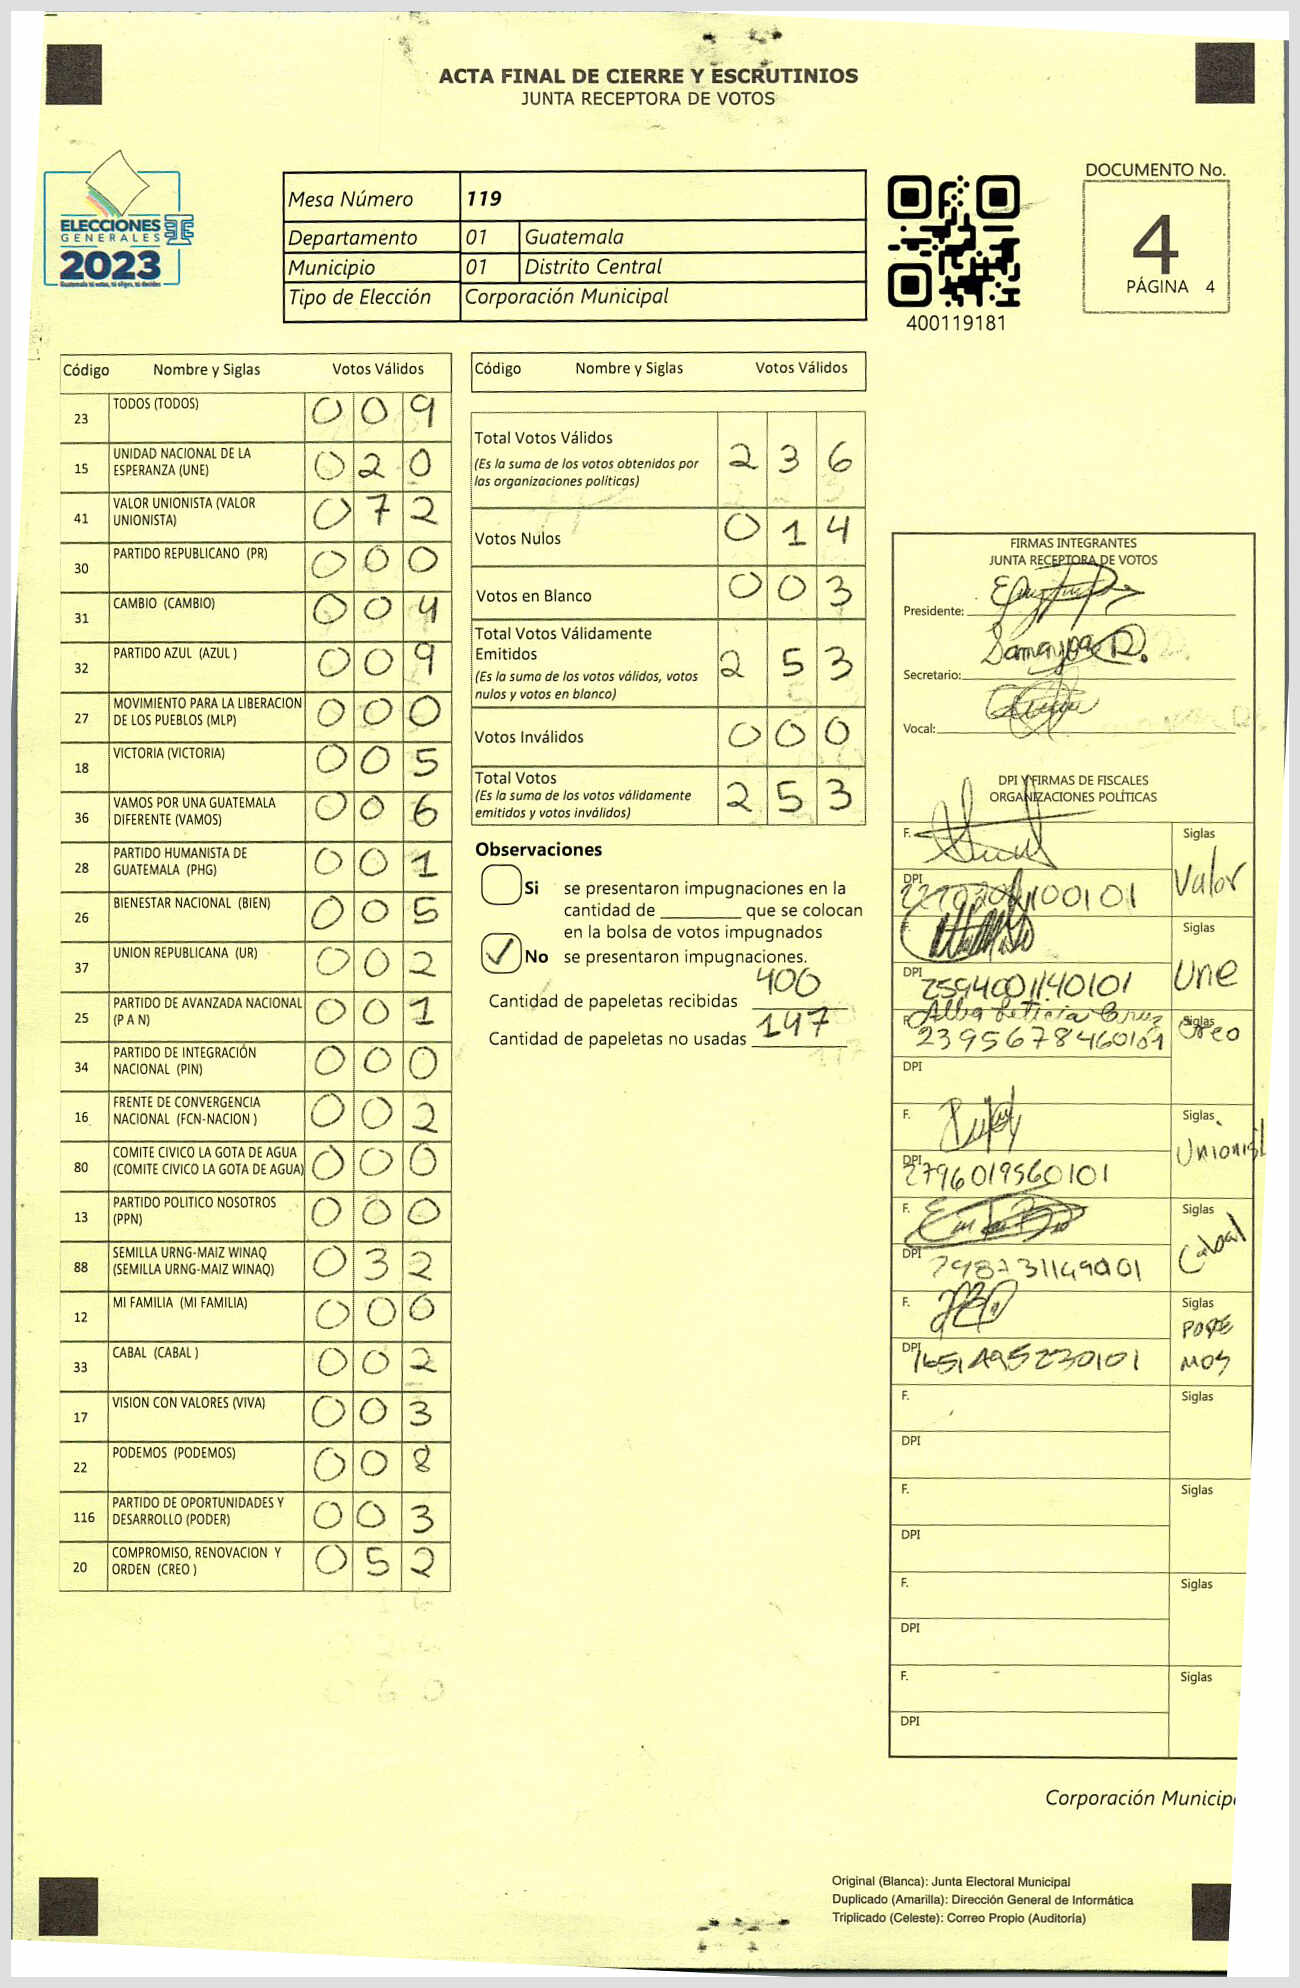 ACTA FINAL DE CIERRE Y ESCRUTINIOS
JUNTA RECEPTORA DE VOTOS
ELECCIONES
GENERALES
2023
Guatemala tú votas, tú eliges, tú decides
Mesa Número 119
Departamento 01 Guatemala
Municipio 01 Distrito Central
Tipo de Elección Corporación Municipal
400119181
DOCUMENTO No.
4
PÁGINA 4
Código Nombre y Siglas Votos Válidos
23 TODOS (TODOS) 0 0 9
15 UNIDAD NACIONAL DE LA ESPERANZA (UNE) 0 2 0
41 VALOR UNIONISTA (VALOR UNIONISTA) 0 7 2
30 PARTIDO REPUBLICANO (PR) 0 0 0
31 CAMBIO (CAMBIO) 0 0 4
32 PARTIDO AZUL (AZUL ) 0 0 9
27 MOVIMIENTO PARA LA LIBERACION DE LOS PUEBLOS (MLP) 0 0 0
18 VICTORIA (VICTORIA) 0 0 5
36 VAMOS POR UNA GUATEMALA DIFERENTE (VAMOS) 0 0 6
28 PARTIDO HUMANISTA DE GUATEMALA (PHG) 0 0 1
26 BIENESTAR NACIONAL (BIEN) 0 0 5
37 UNION REPUBLICANA (UR) 0 0 2
25 PARTIDO DE AVANZADA NACIONAL (P A N) 0 0 1
34 PARTIDO DE INTEGRACIÓN NACIONAL (PIN) 0 0 0
16 FRENTE DE CONVERGENCIA NACIONAL (FCN-NACION ) 0 0 2
80 COMITE CIVICO LA GOTA DE AGUA (COMITE CIVICO LA GOTA DE AGUA) 0 0 0
13 PARTIDO POLITICO NOSOTROS (PPN) 0 0 0
88 SEMILLA URNG-MAIZ WINAQ (SEMILLA URNG-MAIZ WINAQ) 0 3 2
12 MI FAMILIA (MI FAMILIA) 0 0 0
33 CABAL (CABAL ) 0 0 2
17 VISION CON VALORES (VIVA) 0 0 3
22 PODEMOS (PODEMOS) 0 0 8
116 PARTIDO DE OPORTUNIDADES Y DESARROLLO (PODER) 0 0 3
20 COMPROMISO, RENOVACION Y ORDEN (CREO ) 0 5 2
Código Nombre y Siglas Votos Válidos
Total Votos Válidos 2 3 6
(Es la suma de los votos obtenidos por
las organizaciones políticas)
Votos Nulos 0 1 4
Votos en Blanco 0 0 3
Total Votos Válidamente
Emitidos 2 5 3
(Es la suma de los votos válidos, votos
nulos y votos en blanco)
Votos Inválidos 0 0 0
Total Votos 2 5 3
(Es la suma de los votos válidamente
emitidos y votos inválidos)
Observaciones
Si se presentaron impugnaciones en la
cantidad de ________ que se colocan
en la bolsa de votos impugnados
No se presentaron impugnaciones.
Cantidad de papeletas recibidas 400
Cantidad de papeletas no usadas 147
FIRMAS INTEGRANTES
JUNTA RECEPTORA DE VOTOS
Presidente:
Secretario: Samayoa D.
Vocal:
DPI Y FIRMAS DE FISCALES
ORGANIZACIONES POLÍTICAS
F. Siglas
DPI Valor
F. Siglas
DPI 2594001140101 Une
F. Alba Leticia Cruz Siglas Creo
2395678460101
DPI
F. Siglas
DPI 2796019560101 Unionist
F. Siglas
DPI Cabal
F. Siglas
DPI 1651495230101 PODE MOS
F. Siglas
DPI
F. Siglas
DPI
F. Siglas
DPI
F. Siglas
DPI
Corporación Municip
Original (Blanca): Junta Electoral Municipal
Duplicado (Amarilla): Dirección General de Informática
Triplicado (Celeste): Correo Propio (Auditoría)